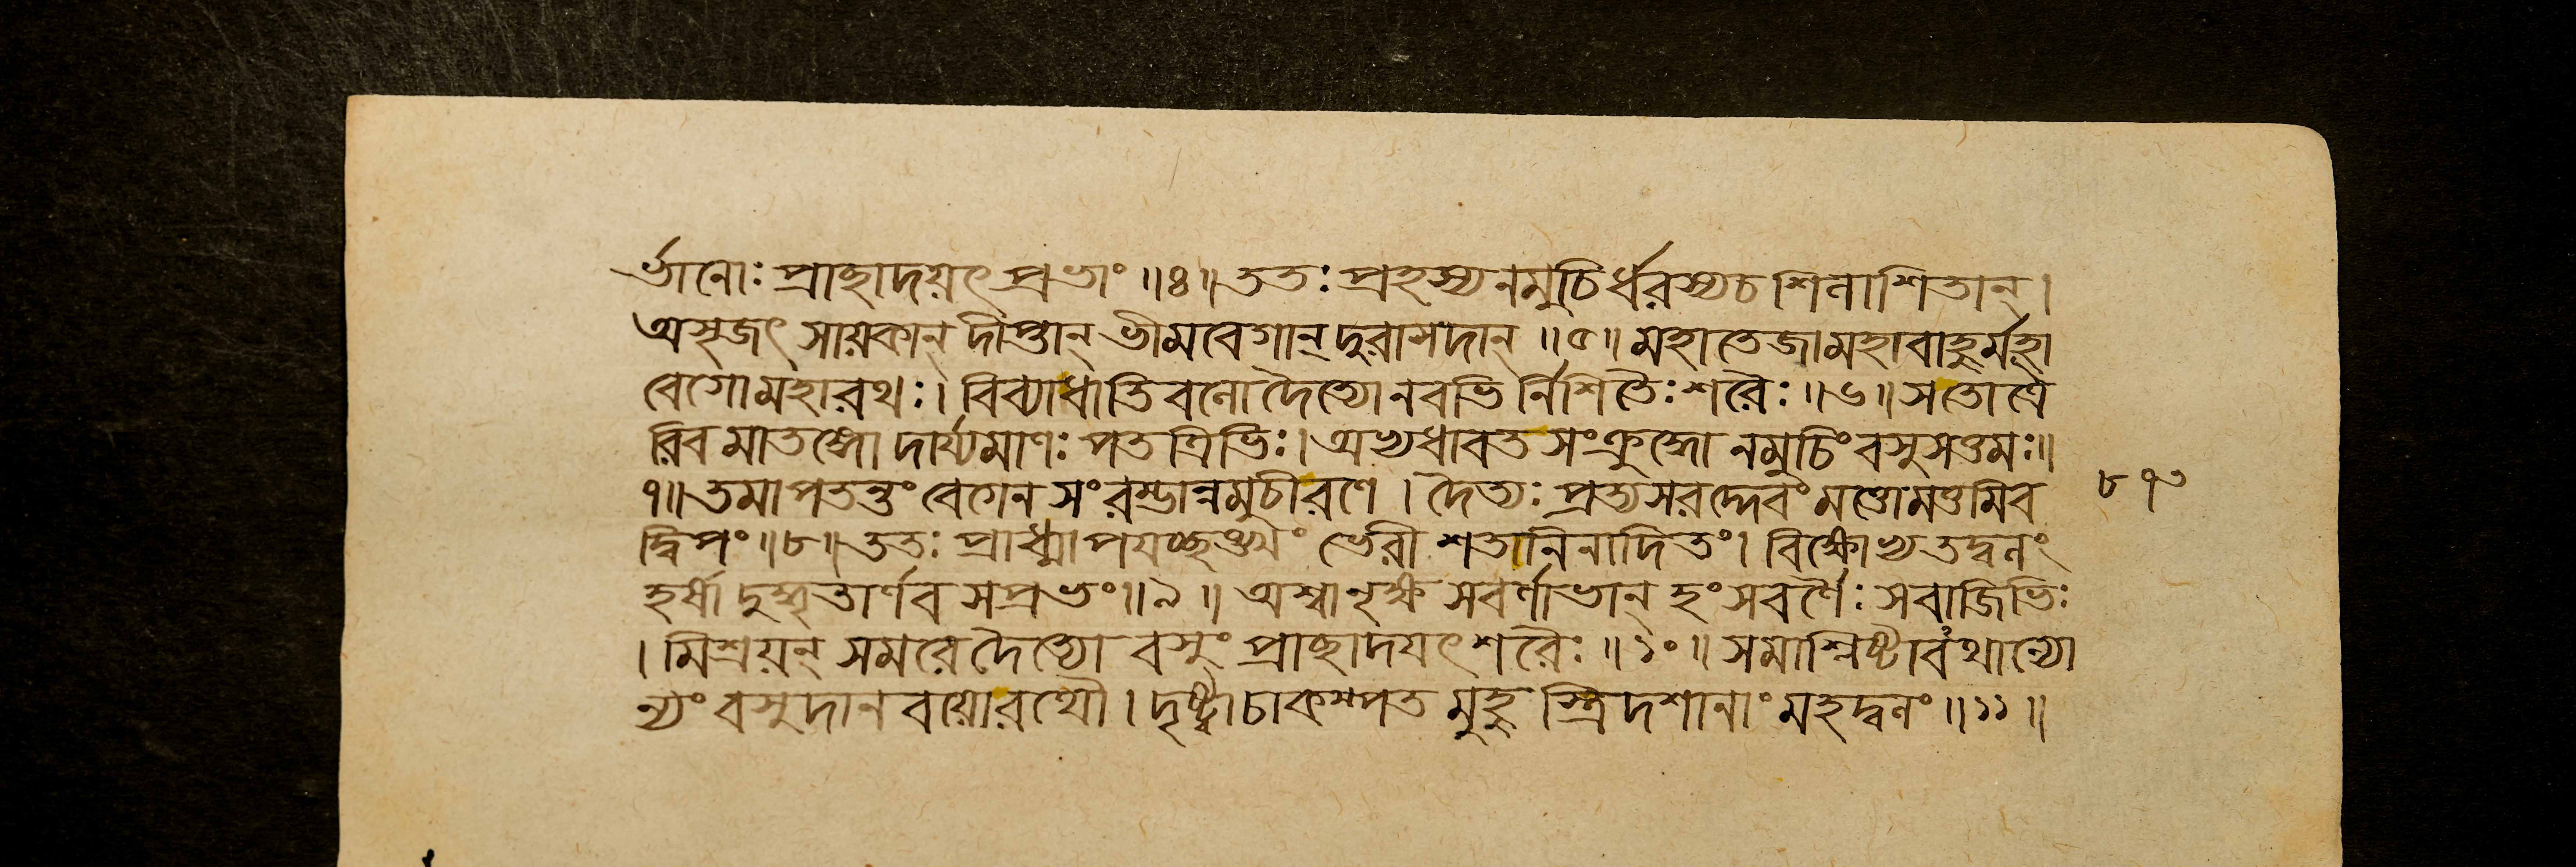 র্ভানোঃ প্রাচ্ছাদয়ৎ প্রভাং॥৪॥ ততঃ প্রহস্য নমুচির্ধরস্য চ শিনাশিতান্।
অসৃজৎ সায়কান্ দীপ্তান্ ভীমবেগান্ দুরাসদান্॥৫॥ মহাতেজা মহাবাহুর্মহা
বেগো মহারথঃ। বিব্যাধাতিবনো দৈত্যো নবভির্নিশিতৈঃ শরৈঃ॥৬॥ স তোত্রৈ
রিব মাতঙ্গো দার্য্যমাণঃ পতত্রিভিঃ। অভ্যধাবত সংক্রুদ্ধো নমুচিং বসুসত্তমঃ॥
৭॥ তমাপতন্তং বেগেন সংরম্ভান্নমুচীরণে। দৈত্যঃ প্রত্যসরদ্দেবং মত্তোমত্তমিব
দ্বিপং॥৮॥ ততঃ প্রাধ্মাপয়চ্ছঙ্খং ভেরী শতনিনাদিতং। বিক্ষোভ্য তদ্বলং
হর্ষাদুদ্ধূতার্ণব সপ্রভং॥৯॥ অশ্বানৃক্ষ সবর্ণাভান্ হংসবর্ণৈঃ সবাজিভিঃ
। মিশ্রয়ন্ সমরে দৈত্যো বসুং প্রাচ্ছাদয়ৎ শরৈঃ॥১০॥ সমাশ্লিষ্টাবথান্যো
ন্যং বসুদানবয়োরথৌ। দৃষ্ট্বা চাকম্পত মুহু স্ত্রিদশানাং মহদ্বলং॥১১॥
৮৭৩